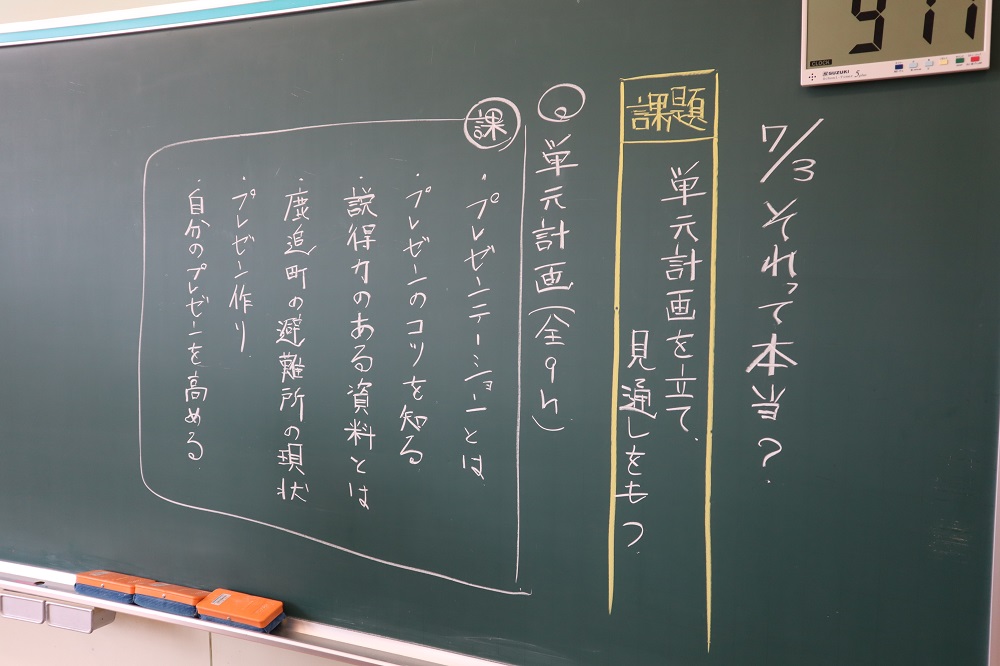 7/3 それって本当？
課題
単元計画を立て、
見通しをもつ
◎単元計画(全9h)
課
・プレゼンテーションとは
・プレゼンのコツを知る
・説得力のある資料とは
・鹿追町の避難所の現状
・プレゼン作り
・自分のプレゼンを高める
911
CLOCK
SUZUKI